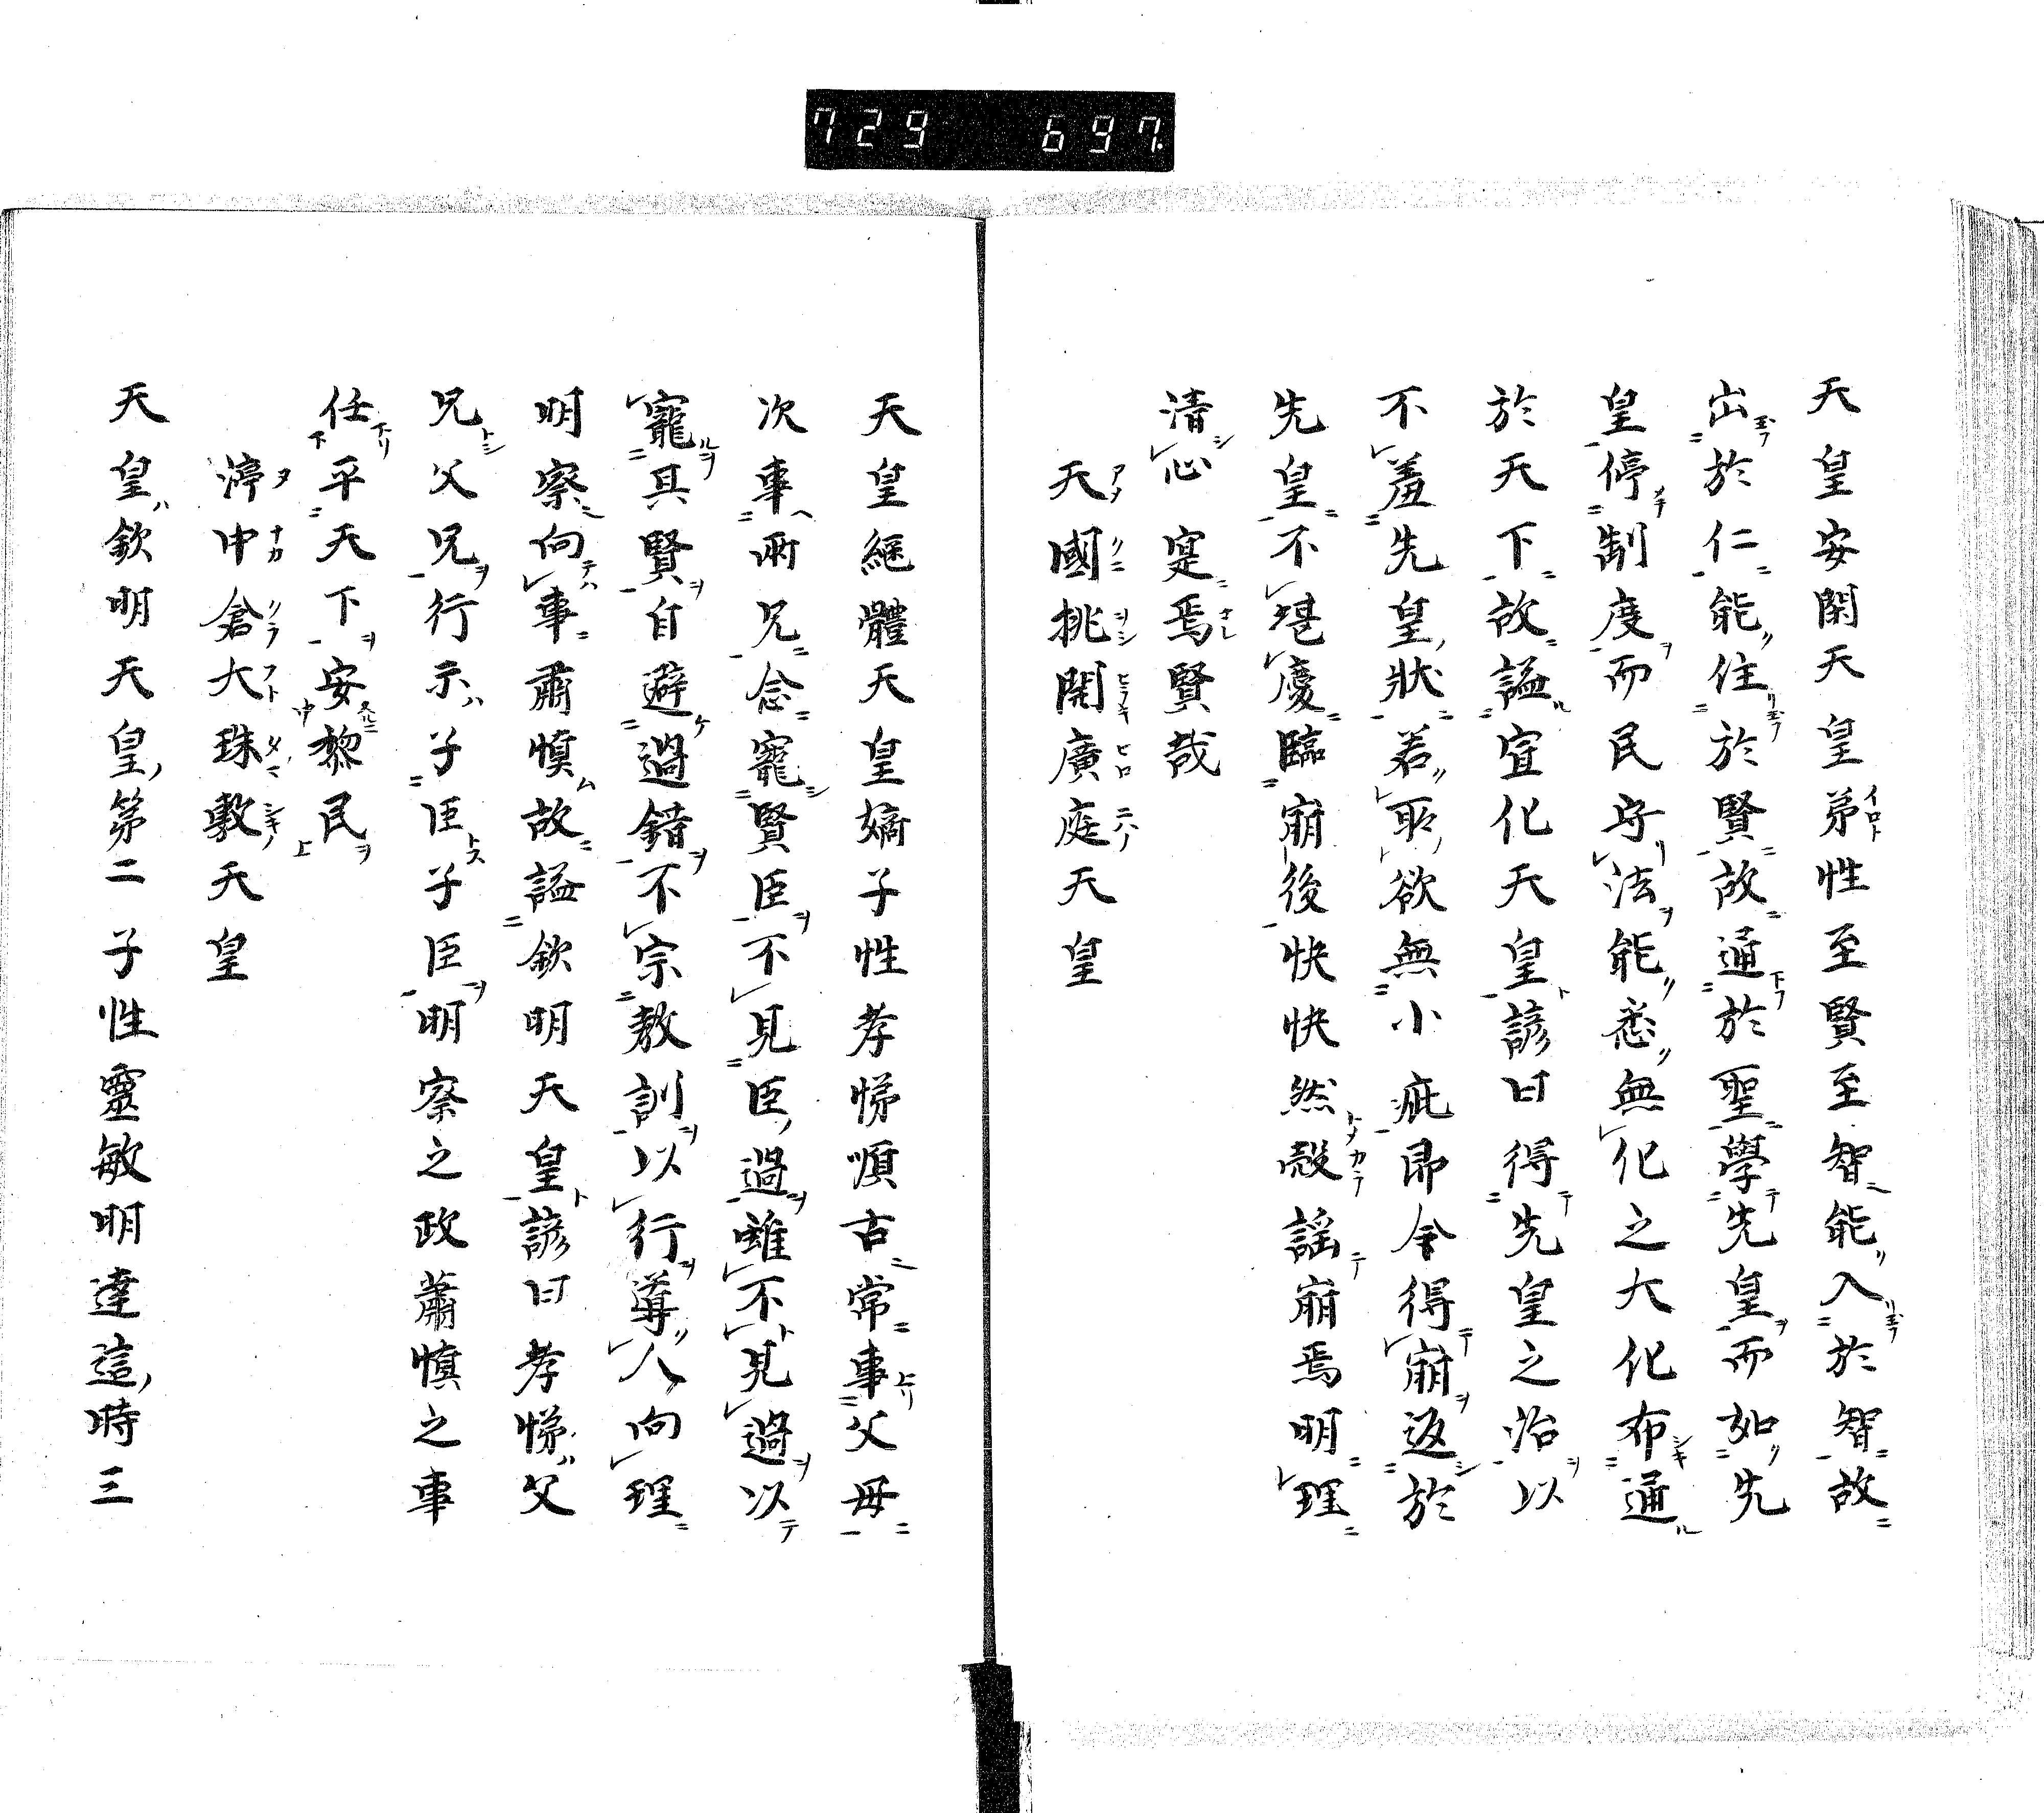 729 697.
天皇安閑天皇弟性至賢至智能入於智故
出於仁能住於賢故通於聖學先皇而如先
皇停制度而民守法能悉無化之大化布通
於天下故謚宣化天皇諺曰得先皇之治以
不羞先皇狀若耻欲無小疵即令得崩返於
先皇不堪慶臨崩後快快然殻謡崩焉明理
清心寔焉賢哉
天國挑開廣庭天皇
天皇繼體天皇嫡子性孝悌順古常事父母
次事兩兄念寵賢臣不見臣過雖不見過以
寵其賢自避過錯不宗教訓以行導人向理
明察向事肅慎故謚欽明天皇諺曰孝悌父
兄父兄行示子臣子臣明察之政蕭慎之事
任平天下安黎民
渟中倉大珠敷天皇
天皇欽明天皇第二子性靈敏明達這時三